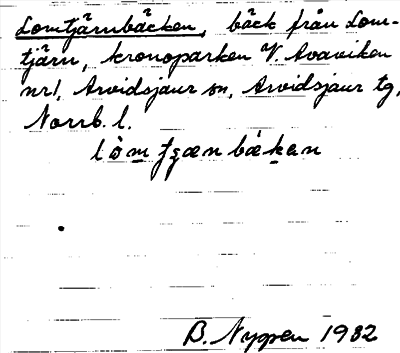 Lomtjärnbäcken, bäck från Lom-
tjärn, kronoparken V. Avaviken
nr 1, Arvidsjaur sn, Arvidsjaur tg,
Norrb. l.
B. Nyppen 1982